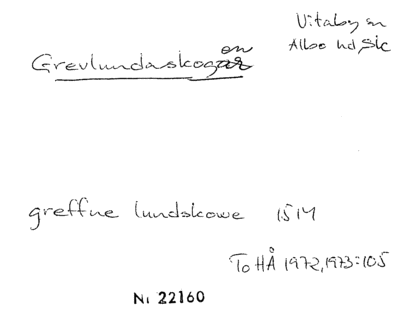 Vitaby sn
Albo hd, Sk
Grevlundaskogen
greffue lundskowe 1514
To HÅ 1972, 1973:105
Nr 22160